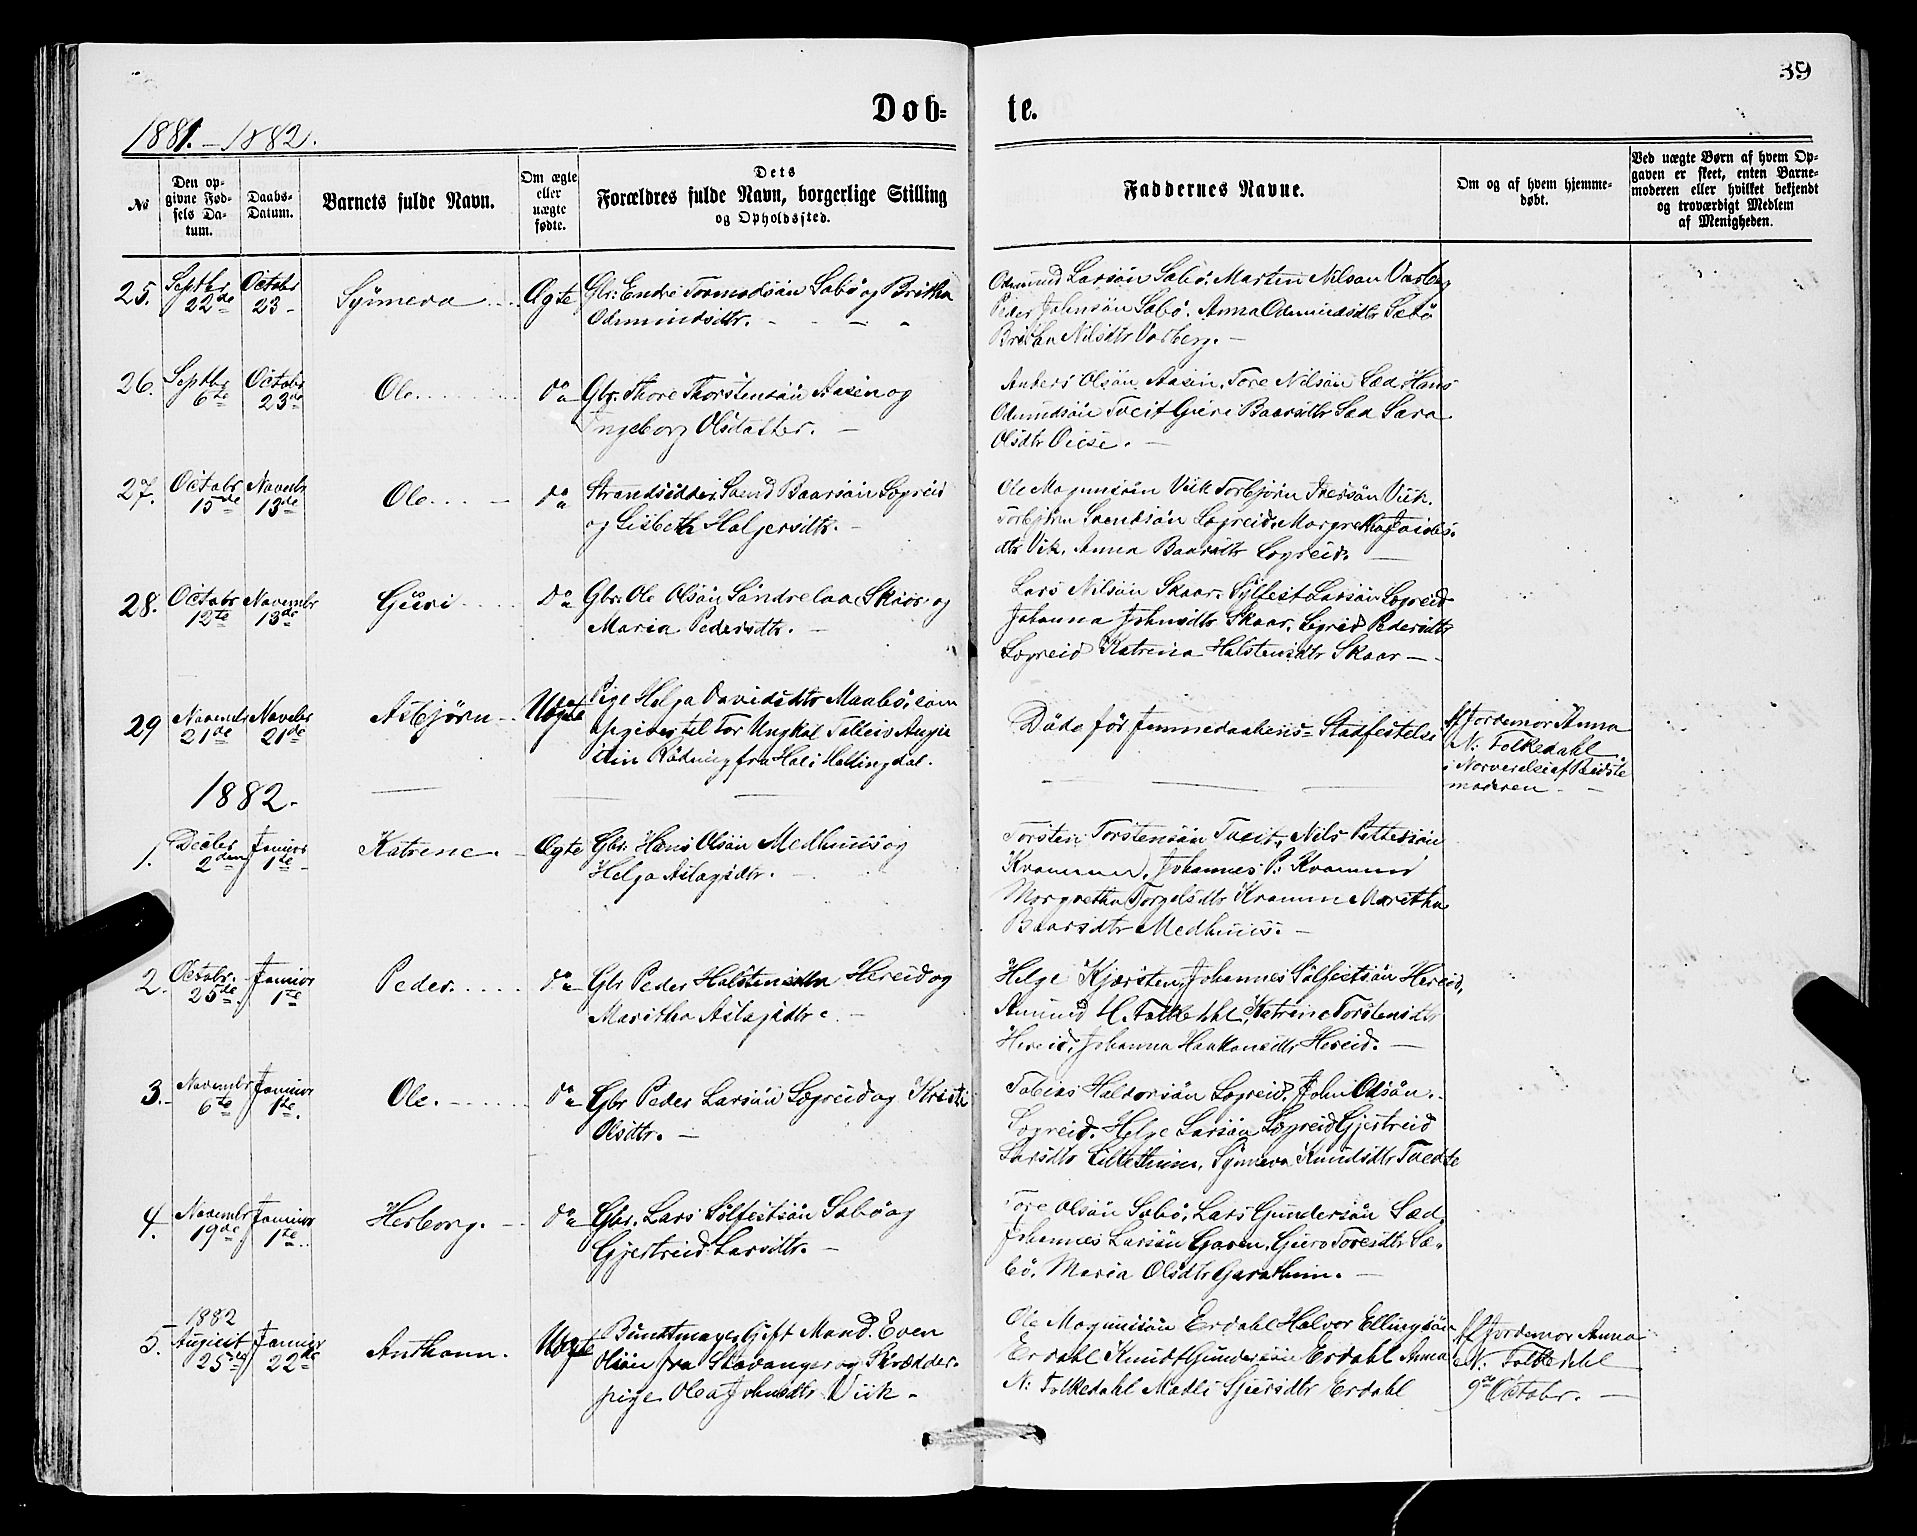 39
Døb-
te.
1881.-1882.
№
Den op-
givne Fød-
sels Da-
tum.
Daabs-
Datum.
Barnets fulde Navn.
Om ægte
eller
uægte
fødte.
Dets
Forældres fulde Navn, borgerlige Stilling
og Opholdssted.
Faddernes Navne.
Om og af hvem hjemme-
døbt.
Ved uægte Børn af hvem Op-
gaven er skeet, enten Barne-
moderen eller hvilket bekjendt
og troværdigt Medlem
af Menigheden.
25. Septbr 22de Octobr 23 Synneva Ægte Gbr. Endre Tormodsön Säbö og Britha
Odmundsdtr.
Odmund Larsön Säbö. Martin Nilson Varberg
Peder Johnsön Säbö. Anna Odmundsdtr Säbö
Britha Nilsdtr Varberg.
26. Septbr 6te Octobr 23de Ole do Gbr. Thore Thorstensön Aasen og
Ingeborg Olsdatter.
Anders Olsön Aasen. Tore Nilsön Sæd. Hans
Odmundsön Tveit Guri Baarsdtr Sæd Sara
Olsdtr
27. Octobr 15de Novembr 13de Ole do Strandsidder Svend Baarsön Legreid
og Lisbeth Holgersdtr.
Ole Magnusön Viik Torbjörn Iversön Viik.
Torbjörn Svendsön Legreid. Margretha Jacobs-
dtr Vik. Anna Baarsdtr Legreid.
28. Octobr 12te Novembr 13de Guri do Gbr. Ole Olsön Skaar og
Maria Pedersdtr.
Lars Nilsön Skaar. Sylfest Larsön Legreid
Johanna Johnsdtr Skaar. Sigrid Pedersdtr
Legreid Katrina Halstensdtr Skaar
29 Novembr 21de Novbr 21de Asbjörn Uægte Pige Helga Davidsdtr Maabö, som
opgives til Far Ungkal Tolleiv
fra Hol i Hallingdal.
Döde för Jemmedaabens Stadfestelse
Af Jordemor Anna
N: Folkedahl
i Norverelse af Bedste
moderen
1882.
1. Decbr 2den Januar 1te Katrine. Ægte Gbr. Hans Olsön Medhuus og
Helga Aslagsdtr.
Torsten Torstensön Tveit, Nils Pettersön
Kvammen, Johannes P: Kvammen
Margretha Torgelsdtr Kvammen Maritha
Baarsdtr Medhuus.
2. Octobr. 25de Januar 1te Peder. do Gbr Peder Halstensön Hereid og
Maritha Aslagsdtr
Helge Kjærsten, Johannes Sölfestsön Hereid,
Amund H. Folkedahl, Katrine Torstensdtr
Hereid, Johanna Haakonsdtr Hereid.
3. Novembr 6te Januar 1te. Ole. do Gbr Peder Larsön Legreid og Kristi
Olsdtr.
Tobias Haldorsön Legreid. John Olsön.
Legreid. Helge Larsön Legreid Gjertreid
Larsdtr Lilletuun, Synneva Knudsdtr Tvedte
4. Novembr 19de Januar 1te Herborg. do Gbr. Lars Sölfestsön Säbö og
Gjertreid Larsdtr.
Tore Olsön Säbö. Lars Gundersön Sæd.
Johannes Larsön Garen. Guro Toresdtr Sæ-
bö. Maria Olsdtr Garathun.
5. 1882 August 25de Januar 22de Anthonn. Uægte Bundtmager Gift Mand. Even
Olsön fra Stavanger og Skrædder-
pige Olea Johnsdtr Viik.
Ole Magnusön Erdahl Halvor Ellingsön
Erdahl Knudt Gundersön Erdahl Anna
N: Folkedahl Madli Sjursdtr Erdahl
Af Jordemor Anna
N: Folkedahl
9de Octobr.